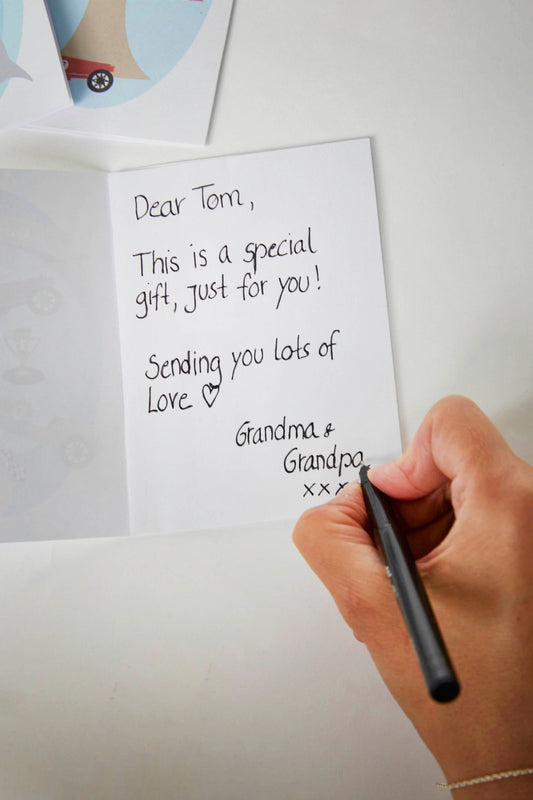 Dear Tom,
This is a special
gift, just for you!
Sending you lots of
Love ♡
Grandma &
Grandpa
xxx